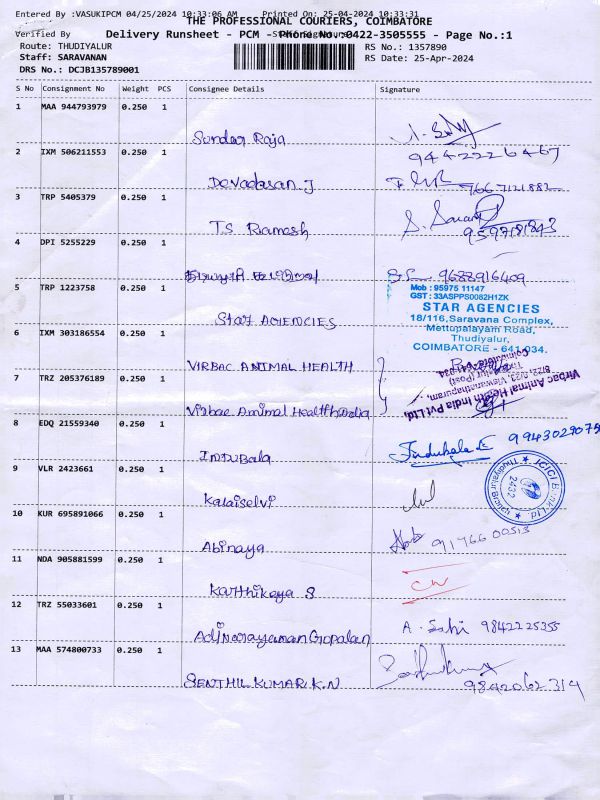 Entered By :VASUKIPCM 04/25/2024 10:33:06 AM Printed On: 25-04-2024 10:33:31
THE PROFESSIONAL COURIERS, COIMBATORE
Verified By
Delivery Runsheet - PCM - Phone No.:0422-3505555 - Page No.:1
Route: THUDIYALUR
RS No.: 1357890
Staff: SARAVANAN
RS Date: 25-Apr-2024
DRS No.: DCJB135789001
S No Consignment No Weight PCS Consignee Details Signature
1 MAA 944793979 0.250 1
Sundar Raja
9442226467
2 IXM 506211553 0.250 1
Devadasan J
3 TRP 5405379 0.250 1
T.S Ramesh
4 DPI 5255229 0.250 1
9688916409
5 TRP 1223758 0.250 1
Star AGENCIES
Mob : 95975 11147
GST : 33ASPPS0082H1ZK
STAR AGENCIES
18/116, Saravana Complex,
Mettupalayam Road,
Thudiyalur,
COIMBATORE - 641 034.
6 IXM 303186554 0.250 1
VIRBAC ANIMAL HEALTH
7 TRZ 205376189 0.250 1
Virbac Animal Health India
Virbac Animal Health India Pvt Ltd.
8 EDQ 21559340 0.250 1
INDUBala
Indubala E 9943029075
9 VLR 2423661 0.250 1
Kalaiselvi
ICICI Bank Ltd.
2432
10 KUR 695891066 0.250 1
Abinaya
11 NDA 905881599 0.250 1
Karthikeya S
12 TRZ 55033601 0.250 1
Adi Narayanan Gopalan
9842225355
13 MAA 574800733 0.250 1
SENTHIL KUMAR K.N
9842062314